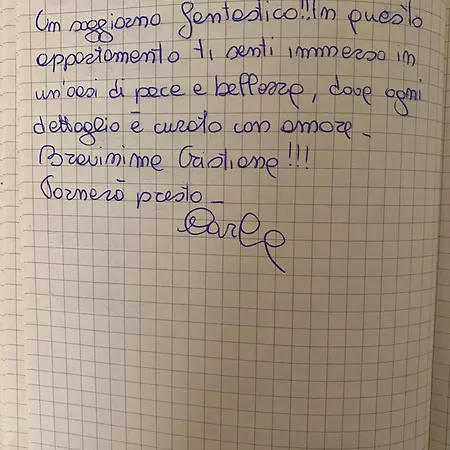 Un soggiorno fantastico!! In questo
appartamento ti senti immerso in
un'oasi di pace e bellezza, dove ogni
dettaglio è curato con amore_
Bravissime Cristiane!!!
Tornerò presto_
Carla